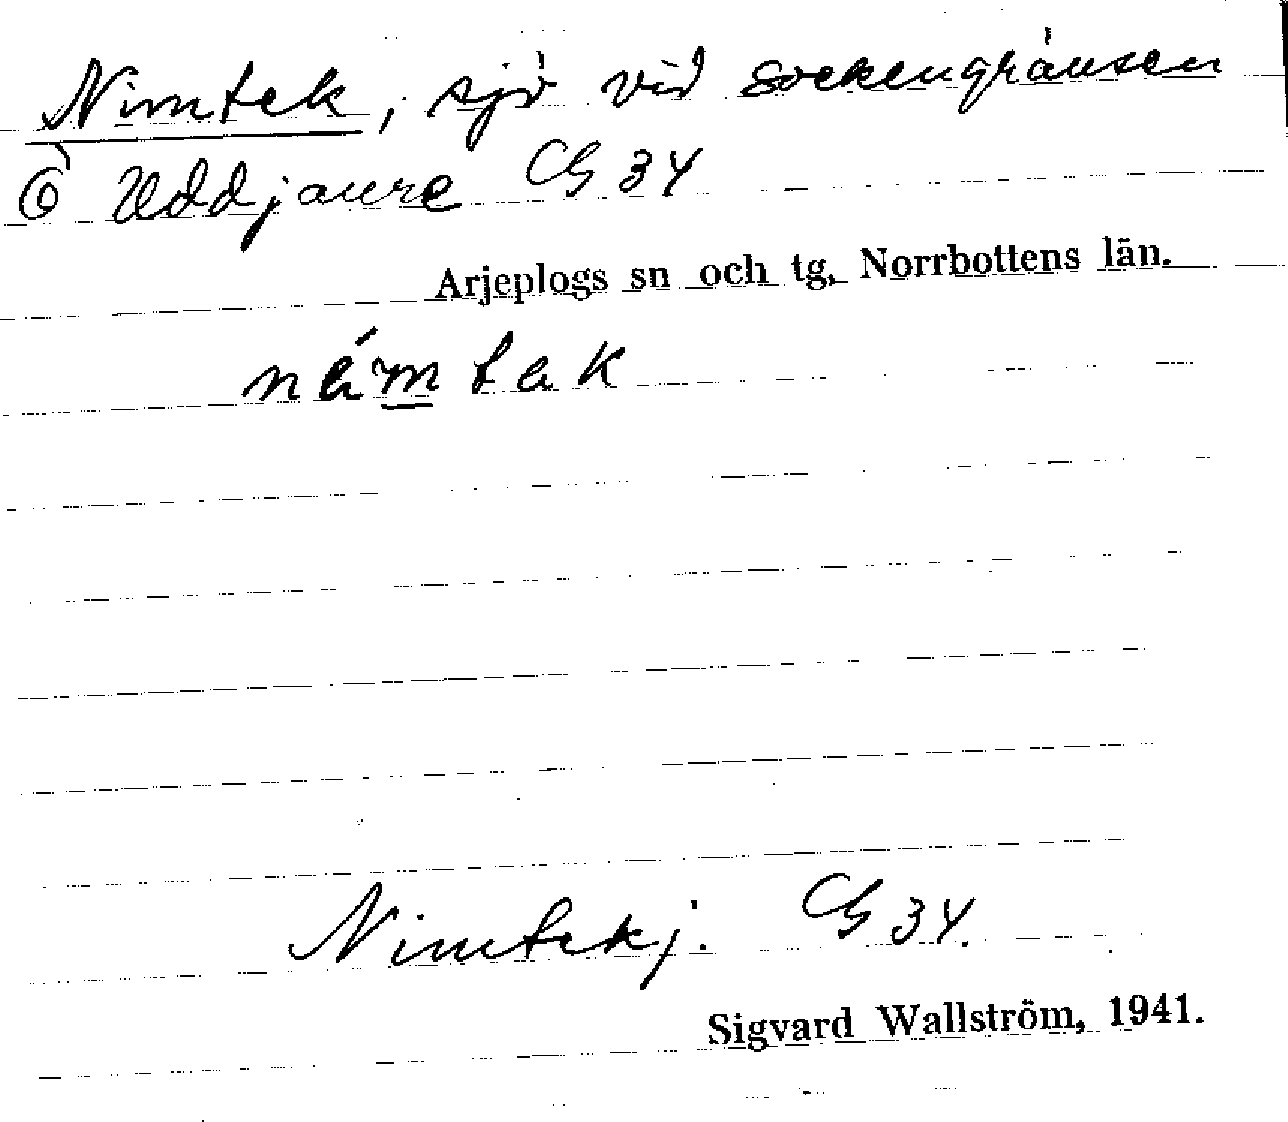 Nimtek, sjö vid sockengränsen
Ö Uddjaure CG 34
Arjeplogs sn och tg, Norrbottens län.
námtak
Nimtekj. CG 34.
Sigvard Wallström, 1941.